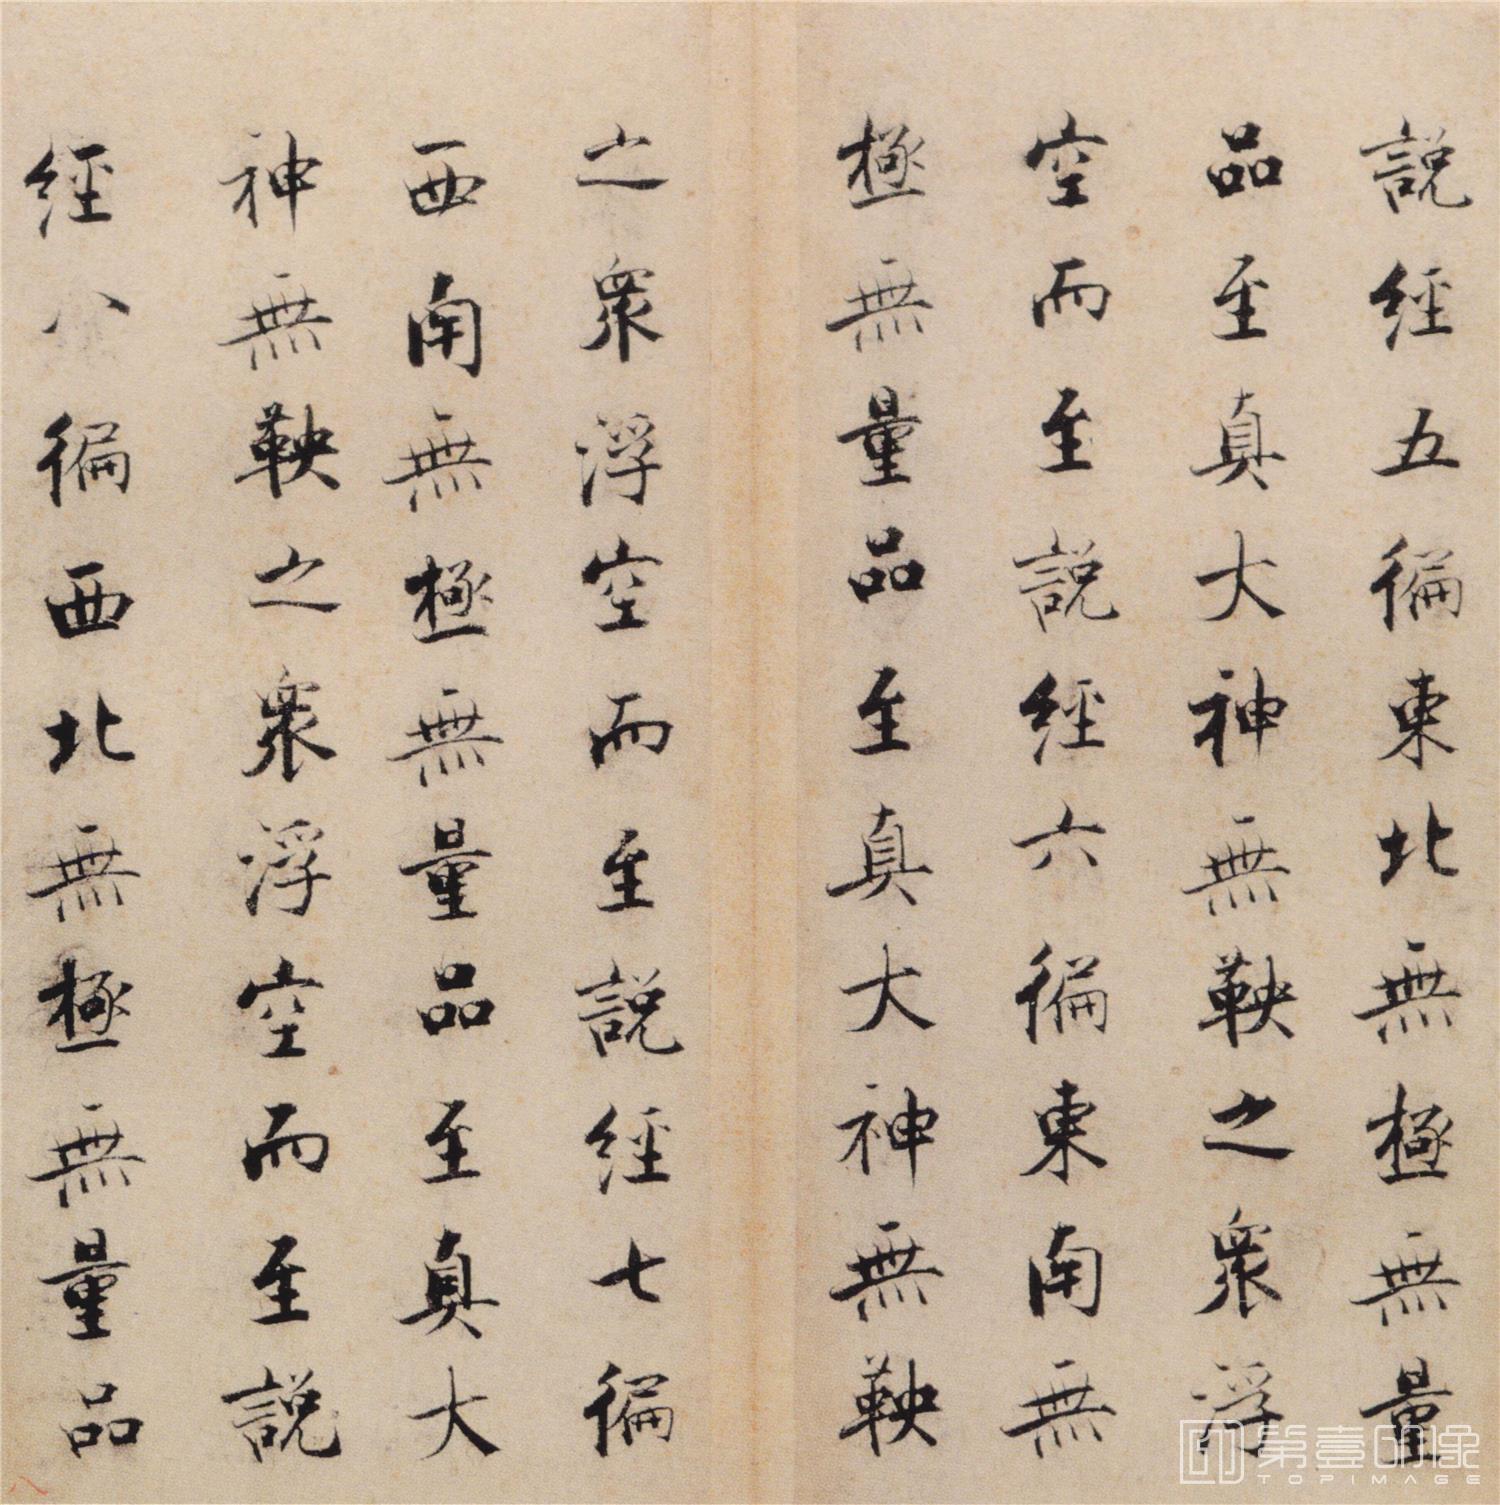 說經五徧東北無極無量
品至真大神無鞅之衆浮
空而至說經六徧東南無
極無量品至真大神無鞅
之衆浮空而至說經七徧
西南無極無量品至真大
神無鞅之衆浮空而至說
經八徧西北無極無量品
第壹映像
TOPIMAGE